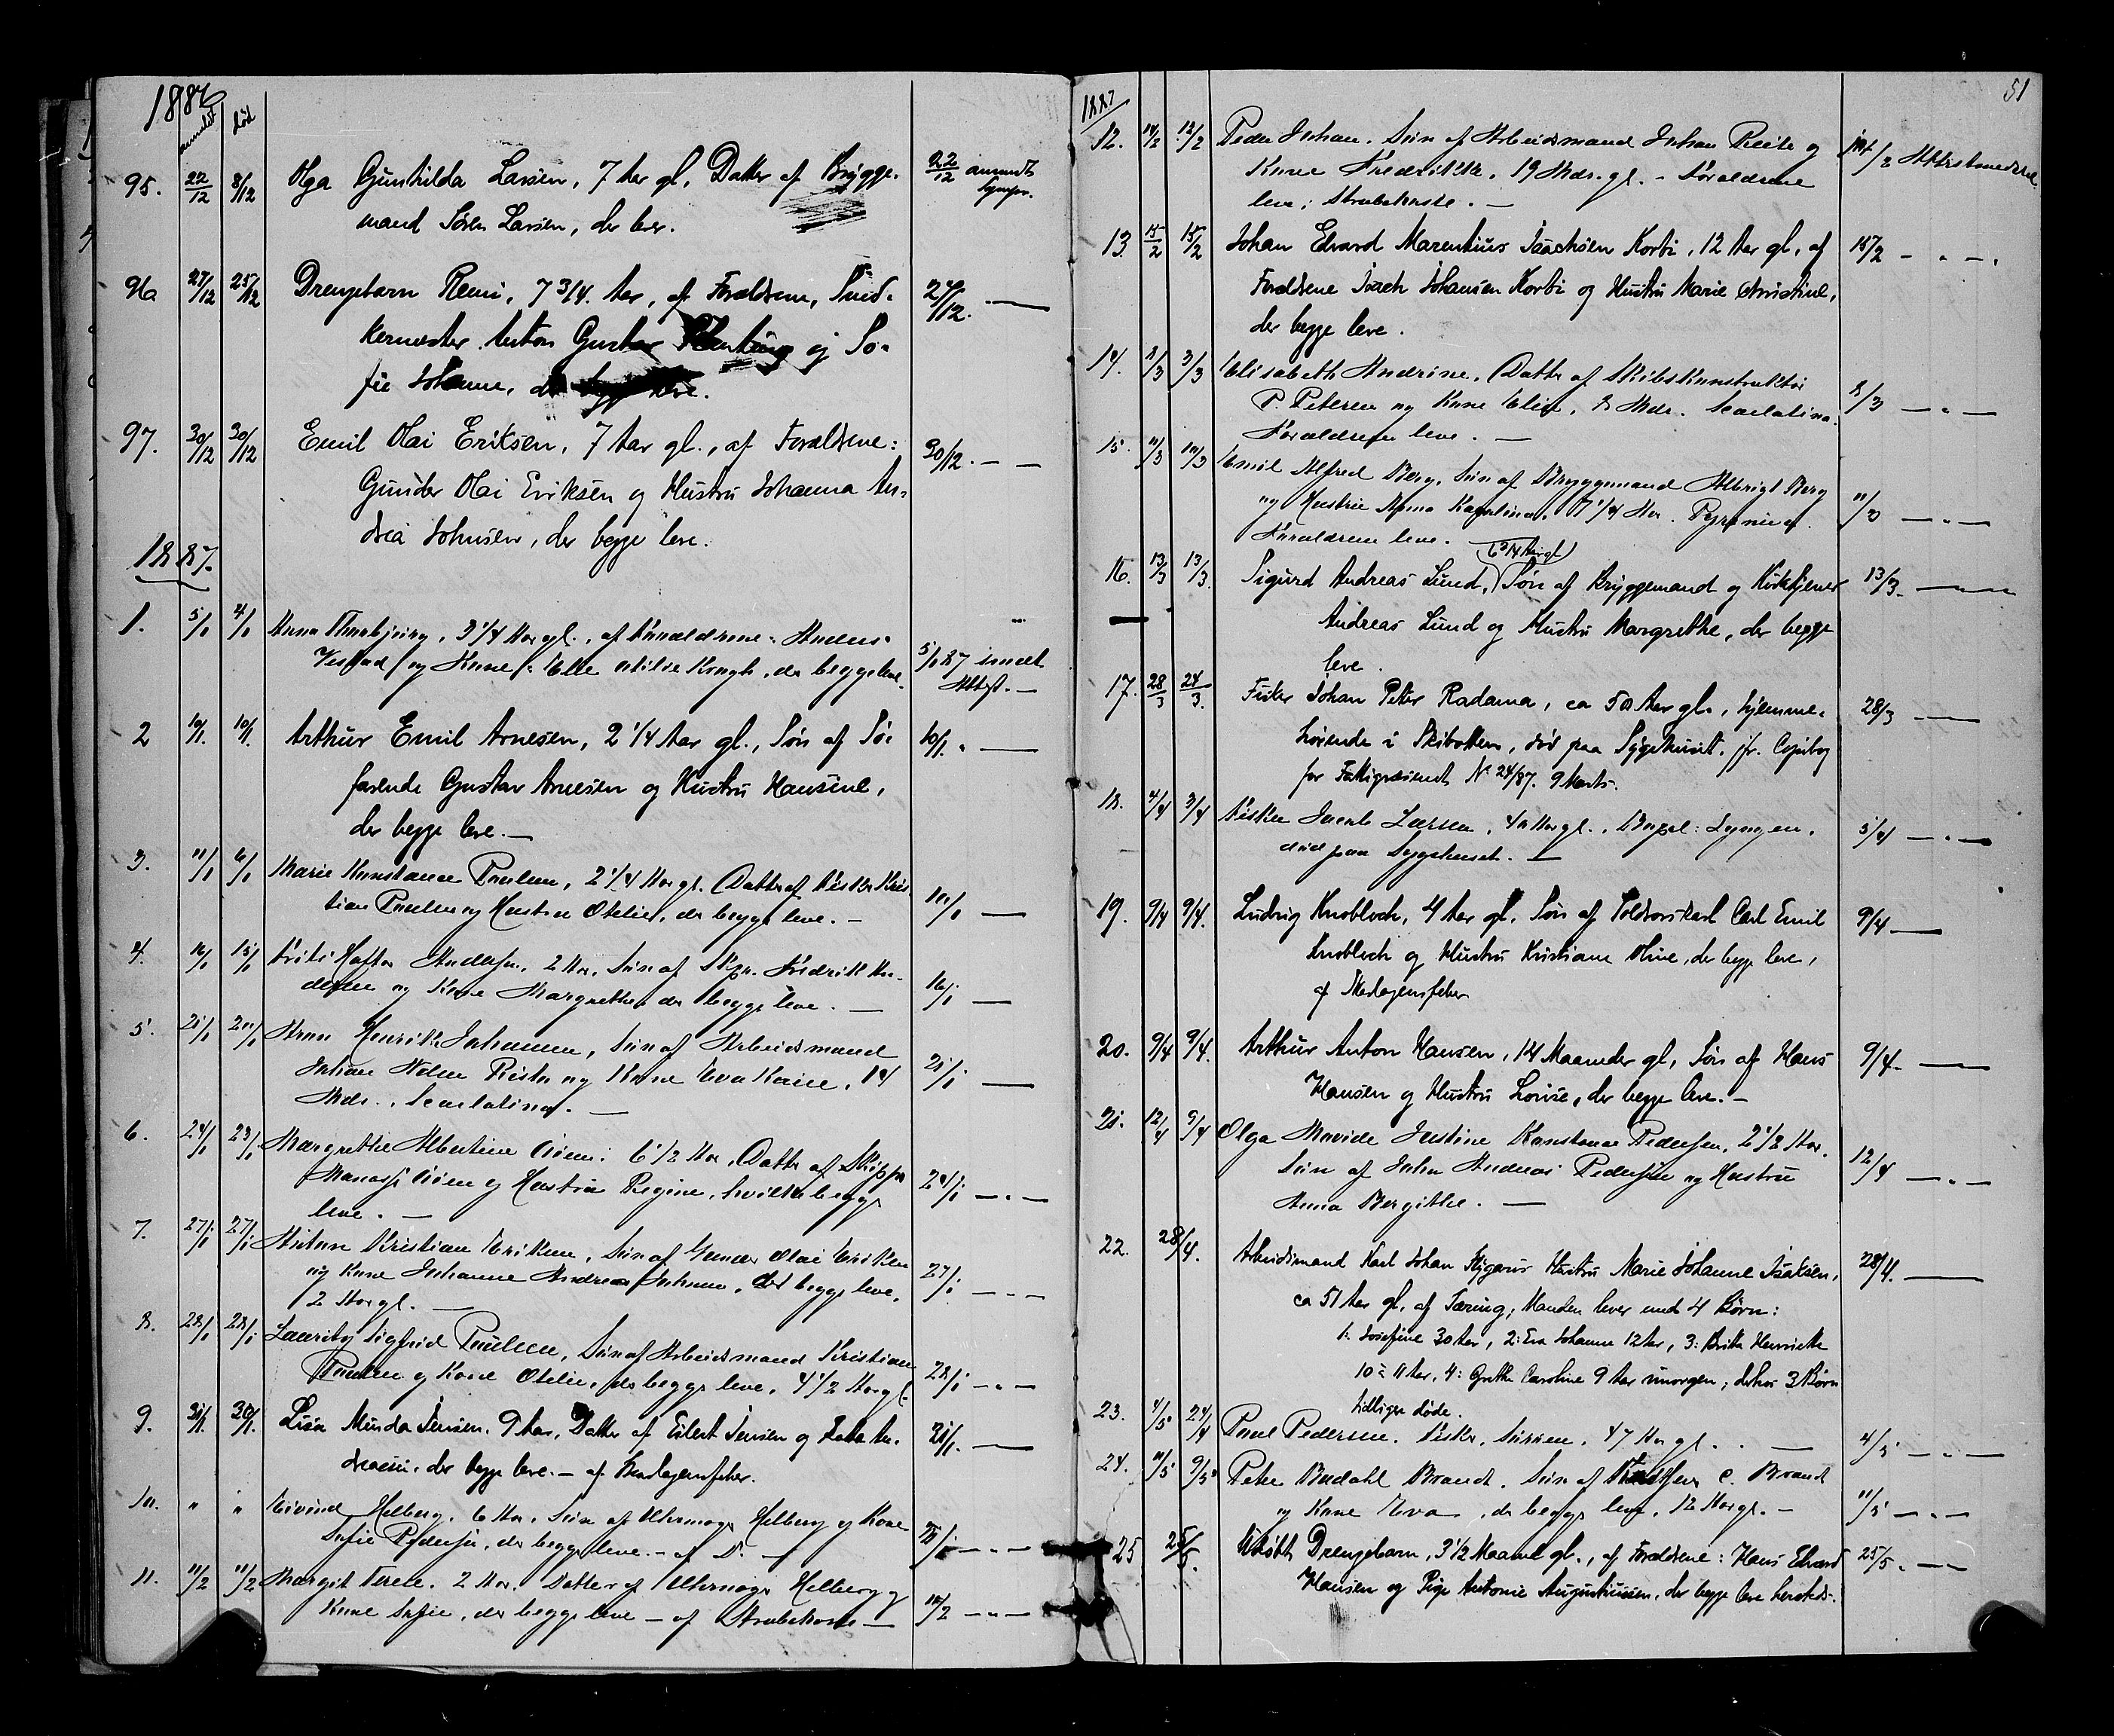 1886
anmeldt død
95. 22/12 8/12 Olga Gunhilda Larsen, 7 Aar gl, Datter af Brygge- 22/12 anmeldt
mand Søren Larsen, der lever.
96 27/12 25/12 Drengebarn Remi, 7 3/4 Aar, af Forældrene, Sned- 27/12. —
kermester Anton Gustav og So-
fie Johanne, der begge leve.
97. 30/12 30/12 Emil Olai Eriksen, 7 Aar gl., af Forældrene: 30/12. — —
Gunder Olai Eriksen og Hustru Johanna An-
drea Johnsen, der begge leve.
1887.
1. 5/1 4/1 Anna Thorbjørg, 3 1/4 Aar gl., af Forældrene: Anders
og Kone Elle Otilie Krogh, der begge leve. 5/1 87
2 10/1. 10/1. Arthur Emil Arnesen, 2 1/4 Aar gl., Søn af Sø- 10/1. " —
farende Gustav Arnesen og Hustru Hansine,
der begge leve. —
3. 11/1 6/1 Marie Konstance Poulsen, 2 1/4 Aar gl. Datter af Fisker Kris-
tian Poulsen og Hustru Otelie, der begge leve. — 11/1 —
4. 16/1 15/1 Andersen, 2 Aar, Søn af Skpr. Fredrik An-
dersen og Kone Margrethe, der begge leve. — 16/1 —
5. 21/1 20/1 Henrik Johansen, Søn af Arbeidsmand
Johan og Kone Eva Karine, 14 21/1 —
Mdr., Scarlatina. —
6. 24/1 23/1 Margrethe Albertine 6 1/2 Aar, Datter af Skipper
og Hustru Regine, hvilke begge 24/1 — " —
leve. —
7. 27/1 27/1 Kristian Eriksen, Søn af Gunder Olai Eriksen
og Kone Johanne Andrea Johnsen, der begge leve, 27/1 — " —
2 Aar gl. —
8. 28/1 28/1 Lauritz Sigfrid Poulsen, Søn af Arbeidsmand Kristian
Poulsen og Kone Otelie, der begge leve, 4 1/2 Aar gl. 28/1 — " —
9. 31/1. 30/1. Lusie Minda Jensen, 9 Aar, Datter af Eilert Jensen og An- 31/1. —
der begge leve. — af Skarlagensfeber.
10. " " Eivind Helberg, 6 Aar, Søn af Uhrmager Helberg og Kone
Sofie Pedersen, der begge leve. — af D. —
11. 11/2 11/2 Margit Terese, 2 Aar. Datter af Uhrmager Helberg og
Kone Sofie, der begge leve — af Strubehoste — 11/2 — " —
51
1887
12. 14/2 12/2 Peder Johan, Søn af Arbeidsmand Johan og
Kone Fredrikke, 19 Mdr. gl. — Forældrene
leve; Strubehoste. —
13. 15/2 15/2 Johan Edvard Marentius Isachsen Korbi, 12 Aar gl, af 15/2 — " —
Forældrene Isach Johansen Korbi og Hustru Marie Christine,
der begge leve.
14. 8/3 3/3 Elisabeth Andrine, Datter af Skibskonstruktør
P. Petersen og Kone Elise, 8 Mdr. Scarlatina. 8/3 — " —
Forældrene leve. —
15. 11/3 10/3 Emil Alfred Berg, Søn af Bryggemand Albrigt Berg
og Hustru Anna Karolina, 7 1/4 Aar. 11/3 — " —
Forældrene leve.
6 3/4 Aar gl
16. 13/3 13/3. Sigurd Andreas Lund, Søn af Bryggemand og Kirketjener 13/3. —
Andreas Lund og Hustru Margrethe, der begge
leve.
17. 28/3 24/3. Fisker Johan Peter Radama, ca 50 Aar gl., hjemme- 28/3 —
hørende i Skibotten, død paa Sygehuset, jfr. Copibog
for Fattigvæsenet No 24/87. 9 Marts.
18. 4/4 3/4 Fisker Jacob Larsen, 40 Aar gl., Bopæl: Lyngen,
død paa Sygehuset. — 5/4 — " —
19. 9/4 9/4. Ludvig Knobloch, 4 Aar gl, Søn af Carl Emil 9/4 —
Knobloch og Hustru Kristiane Oline, der begge leve,
af Skarlagensfeber
20. 9/4 9/4. Arthur Anton Hansen, 14 Maaneder gl, Søn af Hans 9/4. —
Hansen og Hustru Lovise, der begge leve. —
21. 12/4 9/4 Olga Justine Konstance Pedersen, 2 1/2 Aar.
Søn af John Andreas Pedersen og Hustru 12/4 — " —
Anna Bergithe. —
22. 28/4. Arbeidsmand Karl Johan Hustru Marie Johanne Isaksen, 28/4. —
ca 51 Aar gl, af Tæring; Manden lever med 4 Børn:
1: Josefine 30 Aar, 2: Eva Johanne 12 Aar, 3: Brita Henriette
10 à 11 Aar, 4: Grethe Caroline 9 Aar imorgen; derhos 3 Børn
tidligere døde.
23. 4/5 24/4 Poul Pedersen. Fisker, 47 Aar gl. . — 4/5 — " —
24. 11/5 9/5 Peter Bredahl Brandt. Søn af C. Brandt
og Kone Eva , der begge leve, 12 Aar gl. — 11/5 — " —
25 25/5. Udøbt Drengebarn, 3 1/2 Maaned gl., af Forældrene: Hans Edvard 25/5. —
Hansen og Pige Antonie Augustinusen, der begge leve